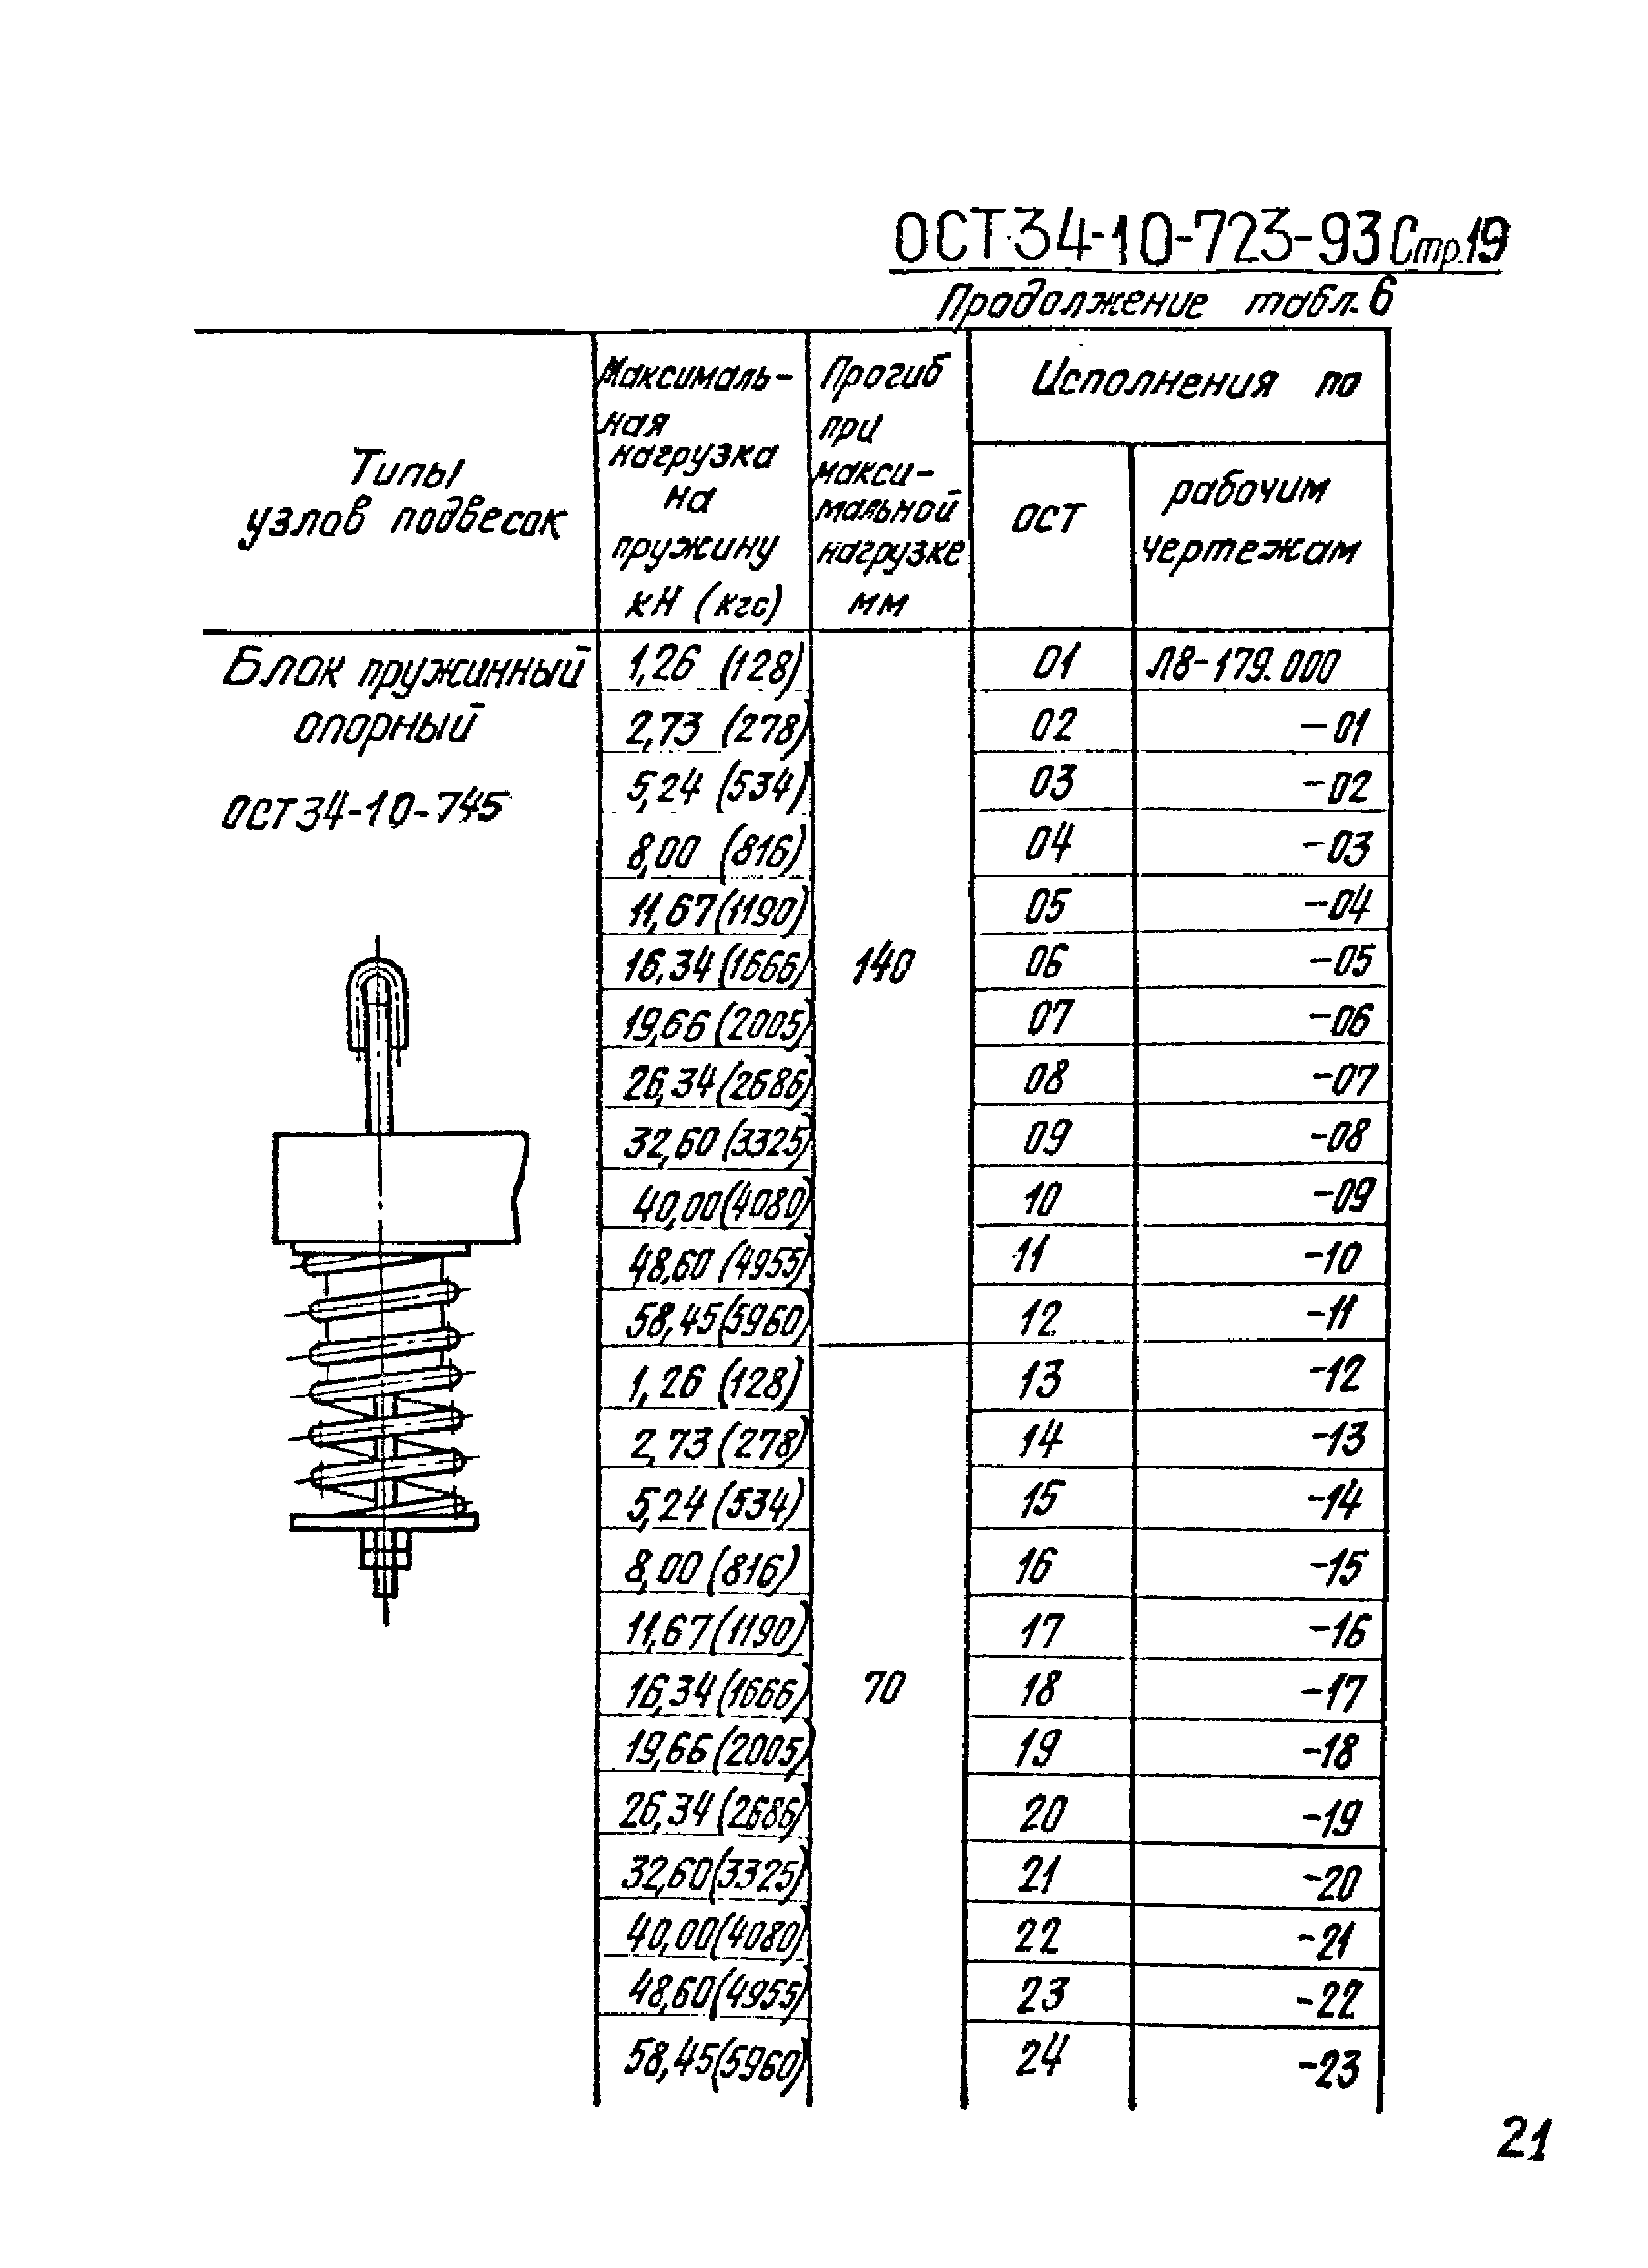 ОСТ 34-10-723-93 Стр.19
Продолжение табл. 6
Типы
узлов подвесок
Максималь-
ная
нагрузка
на
пружину
кН (кгс)
Прогиб
при
макси-
мальной
нагрузке
мм
Исполнения по
ОСТ
рабочим
чертежам
Блок пружинный
опорный
ОСТ 34-10-745
1,26 (128) 01 Л8-179.000
2,73 (278) 02 -01
5,24 (534) 03 -02
8,00 (816) 04 -03
11,67 (1190) 05 -04
16,34 (1666) 140 06 -05
19,66 (2005) 07 -06
26,34 (2686) 08 -07
32,60 (3325) 09 -08
40,00 (4080) 10 -09
48,60 (4955) 11 -10
58,45 (5960) 12 -11
1,26 (128) 13 -12
2,73 (278) 14 -13
5,24 (534) 15 -14
8,00 (816) 16 -15
11,67 (1190) 17 -16
16,34 (1666) 70 18 -17
19,66 (2005) 19 -18
26,34 (2686) 20 -19
32,60 (3325) 21 -20
40,00 (4080) 22 -21
48,60 (4955) 23 -22
58,45 (5960) 24 -23
21